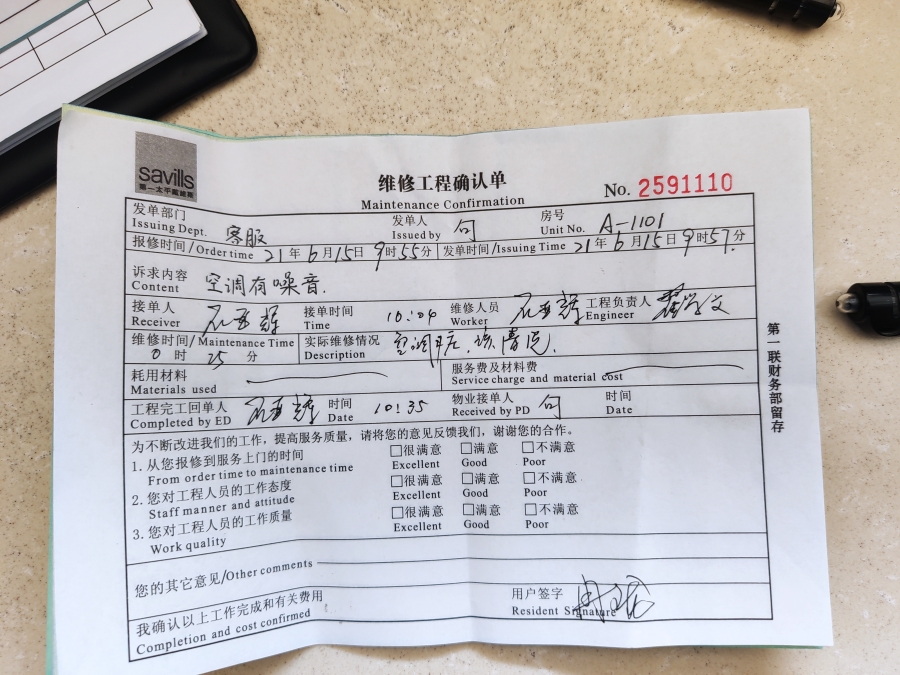 savills
第一太平戴维斯
维修工程确认单
Maintenance Confirmation
No. 2591110
发单部门 客服 发单人 句 房号 A-1101
Issuing Dept. Issued by Unit No.
报修时间/Order time 21年6月15日9时55分 发单时间/Issuing Time 21年6月15日9时57分
诉求内容 空调有噪音.
Content
接单人 接单时间 10:04 维修人员 工程负责人
Receiver Time Worker Engineer
维修时间/Maintenance Time 实际维修情况 空调
0时25分 Description
耗用材料 服务费及材料费
Materials used Service charge and material cost
工程完工回单人 时间 10:35 物业接单人 句 时间
Completed by ED Date Received by PD Date
为不断改进我们的工作，提高服务质量，请将您的意见反馈我们，谢谢您的合作。
1. 从您报修到服务上门的时间 □很满意 □满意 □不满意
From order time to maintenance time Excellent Good Poor
2. 您对工程人员的工作态度 □很满意 □满意 □不满意
Staff manner and attitude Excellent Good Poor
3. 您对工程人员的工作质量 □很满意 □满意 □不满意
Work quality Excellent Good Poor
您的其它意见/Other comments
我确认以上工作完成和有关费用 用户签字
Completion and cost confirmed Resident Signature
第一联财务部留存